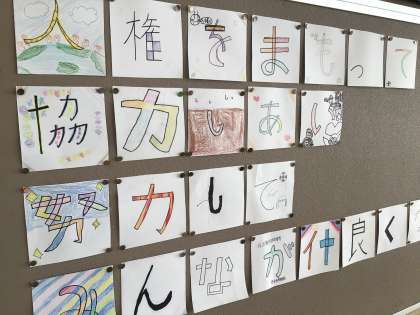 人権をまもって
協力しあい
努力して
みんなが仲良く